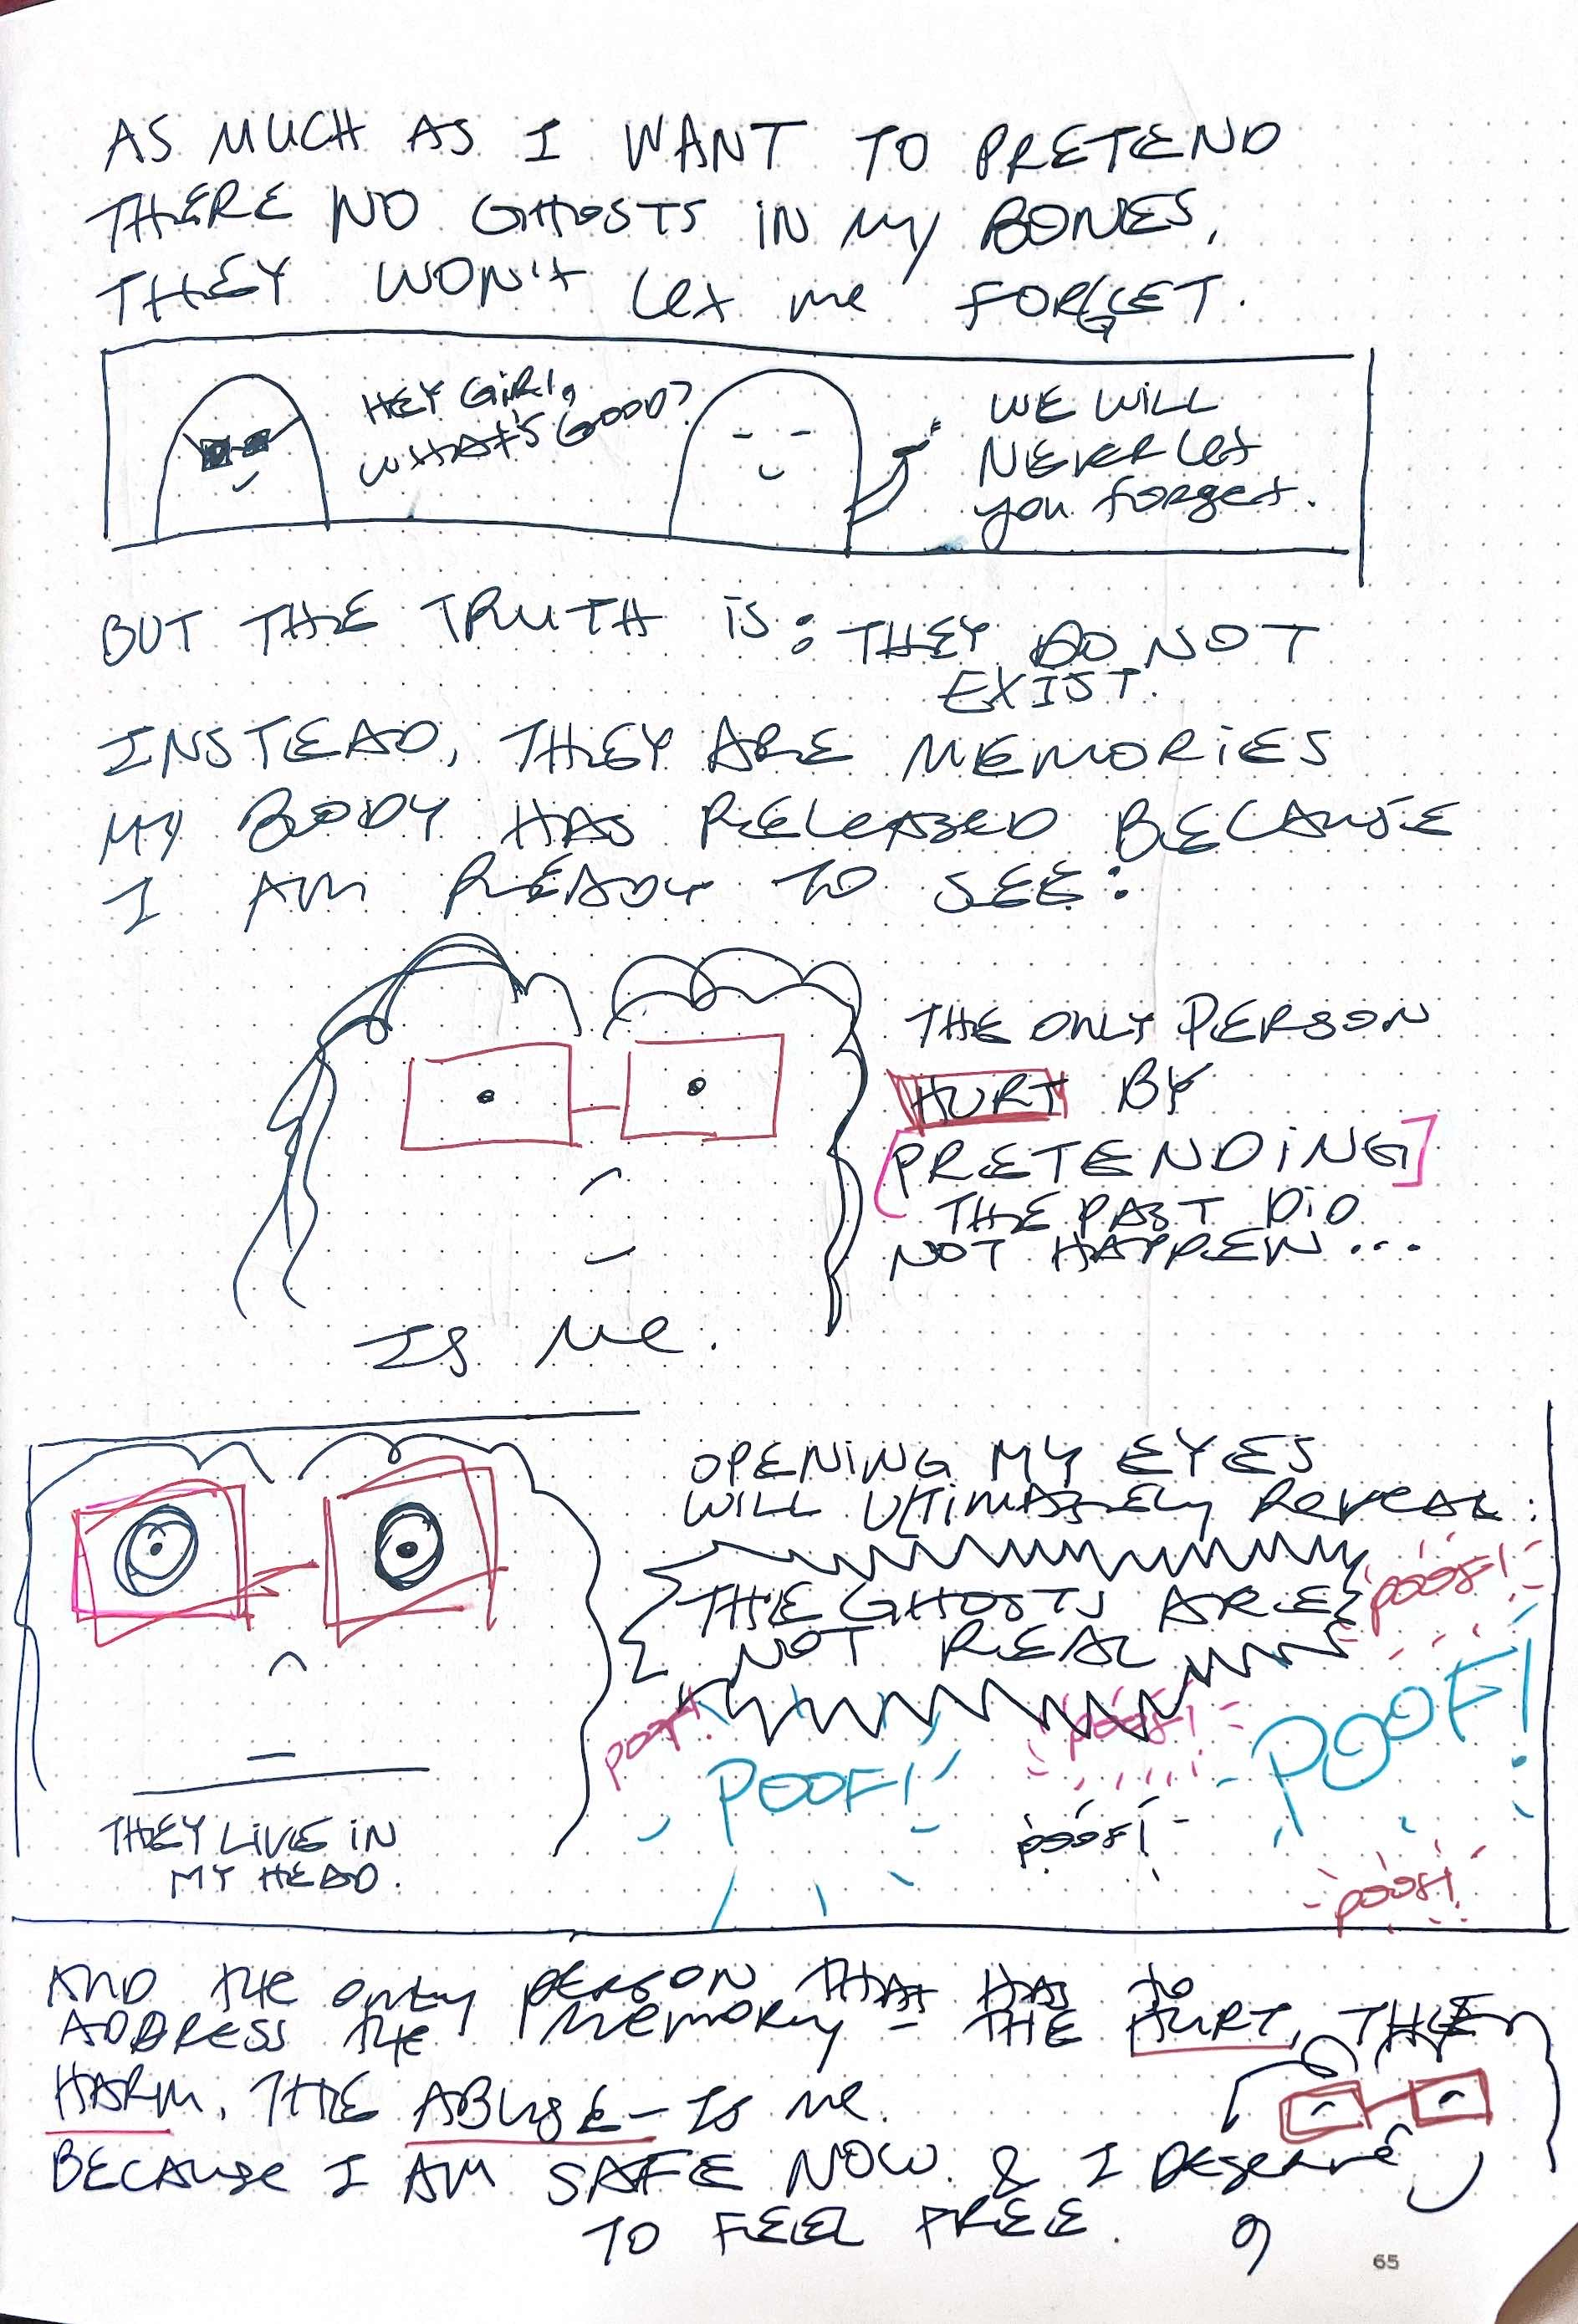 AS MUCH AS I WANT TO PRETEND
THERE NO GHOSTS IN MY BONES,
THEY WON't Let me FORGET.
HEY GIRl,
WHAt'S GOOD?
WE WiLL
NEVER Let
you forget.
BUT THE TRUTH iS: THEY DO NOT
EXIST.
INSTEAD, THEY ARE MEMORiES
MY BODY HAS RELEASED BECAUSE
I AM READY TO SEE:
THE ONLY PERSON
HURT BY
[PRETENDiNG]
THE PAST DiD
NOT HAPPEN...
IS Me.
OPENiNG MY EYES
WiLL ULTiMATELY ReveAL:
THE GHOSTS ARE
NOT REAL
POOF!
POOF!
POOF!
POOF!
POOF!
POOF!
POOF!
THEY LiVE iN
MY HEAD.
AND tHe only PERSON THAt HAS to
ADDRESS tHe memoRy - THE HURT, THE
HARM, THE ABUSE - IS me.
BECAuse I AM SAFE NOW. & I Deserve
TO FEEL FREE.
65